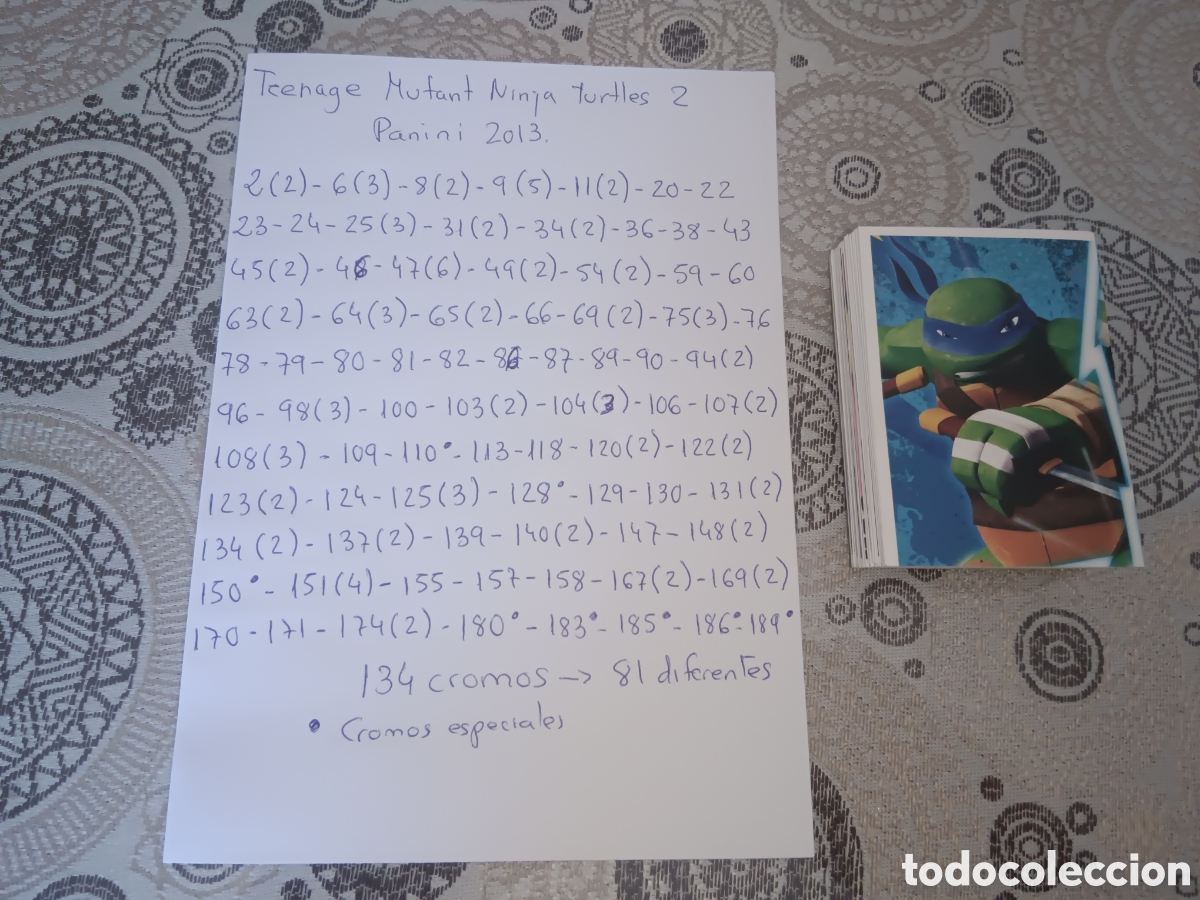 Teenage Mutant Ninja Turtles 2
Panini 2013.
2(2) - 6(3) - 8(2) - 9(5) - 11(2) - 20 - 22
23 - 24 - 25(3) - 31(2) - 34(2) - 36 - 38 - 43
45(2) - 46 - 47(6) - 49(2) - 54(2) - 59 - 60
63(2) - 64(3) - 65(2) - 66 - 69(2) - 75(3) - 76
78 - 79 - 80 - 81 - 82 - 86 - 87 - 89 - 90 - 94(2)
96 - 98(3) - 100 - 103(2) - 104(3) - 106 - 107(2)
108(3) - 109 - 110• - 113 - 118 - 120(2) - 122(2)
123(2) - 124 - 125(3) - 128• - 129 - 130 - 131(2)
134(2) - 137(2) - 139 - 140(2) - 147 - 148(2)
150• - 151(4) - 155 - 157 - 158 - 167(2) - 169(2)
170 - 171 - 174(2) - 180• - 183• - 185• - 186• - 189•
134 cromos → 81 diferentes
• Cromos especiales
todocoleccion